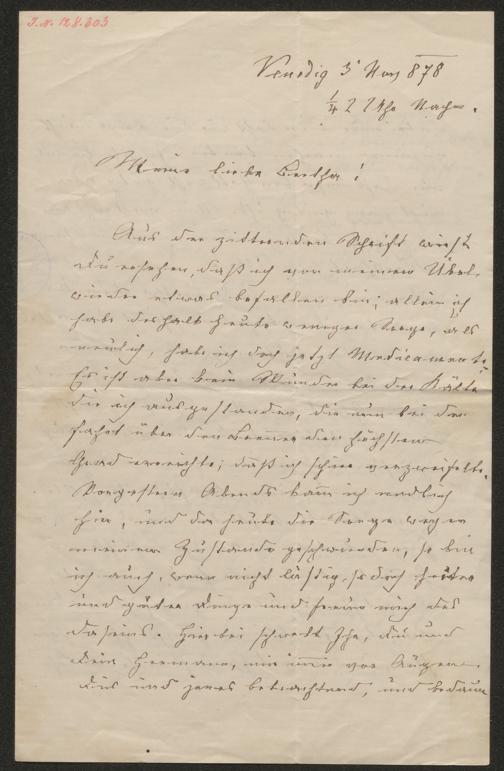 J.N. 128.803
Venedig 3 Nov 878
1/4 2 Uhr Nachm.
Meine liebe Bertha!
Aus der zitternden Schrift wirst
du ersehen, daß ich von meinem Übel
wieder etwas befallen bin; allein ich
habe deshalb heute weniger Sorge, als
neulich, habe ich doch jetzt Medicamente.
Es ist aber kein Wunder bei der Kälte
die ich ausgestanden, die nun bei der
Fahrt über den Brenner den höchsten
Grad erreichte; daß ich schier verzweifelte.
Vorgestern Abends kam ich endlich
hier, und da heute die Sorge wegen
meinem Zustande geschwunden, so bin
ich auch, wenn nicht lustig, so doch heiter
und guter Dinge und freue mich des
Daseins. Hierbei schwebt Ihr, du und
dein Hermann, mir immer vor Augen.
dies und jenes betrachtend, und